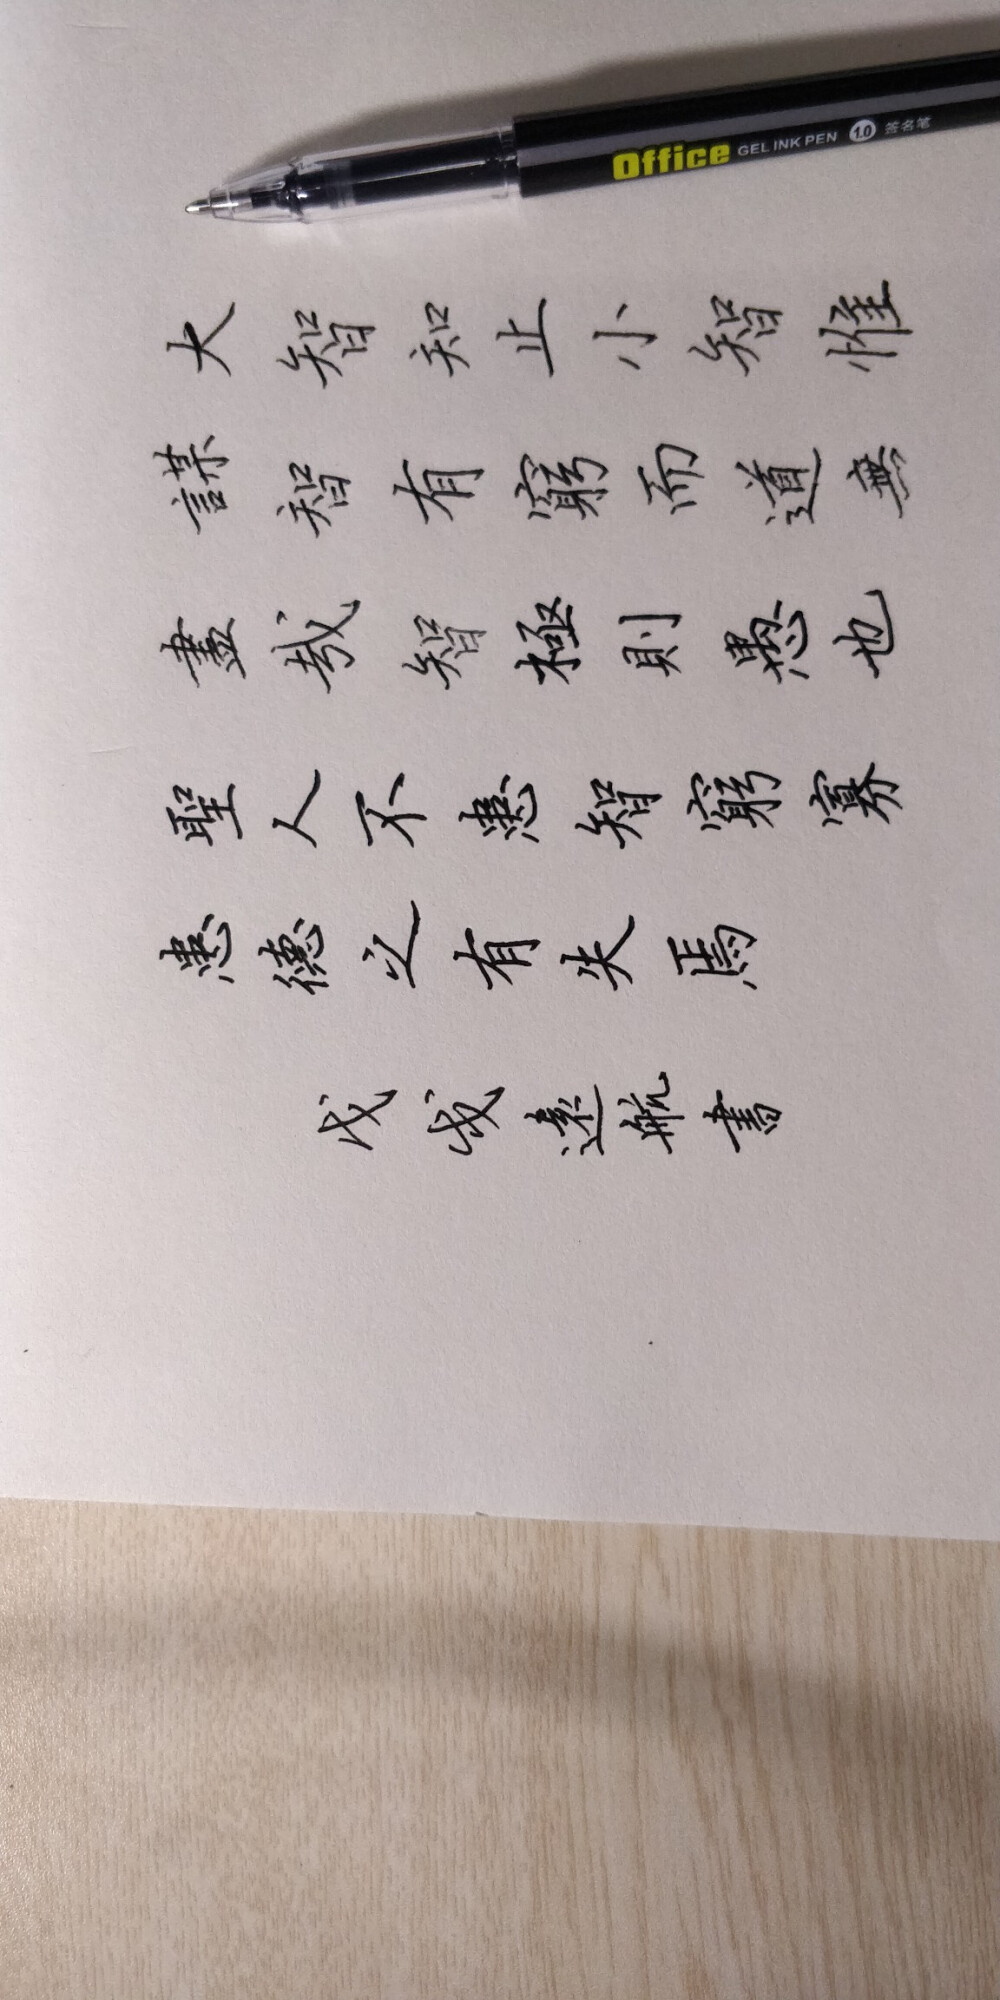 Office GEL INK PEN 1.0 签名笔
大智知止小智惟
謀智有窮而道無
盡哉智極則愚也
聖人不患智窮寡
患德之有失焉
戊戌遠航書